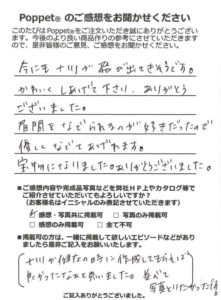 Poppet® のご感想をお聞かせください
このたびはPoppet®をご注文いただき誠にありがとうございます。
今後のより良い商品作りの参考にさせていただきますので、
是非皆様のご意見、ご感想をお聞かせください。
今にも ナリが 出てきそうです。
かわいく しあげて下さい、ありがとう
ございました。
眉間をなでられるのが好きだったので
優しくなでてあげれます。
宝物になりました。ありがとうございました。
■ご感想内容や完成品写真などを弊社HP上やカタログ等で
ご紹介させていただいてもよろしいですか?
(お客様名はイニシャルのみ表記させていただきます)
感想・写真共に掲載可 □写真のみ掲載可
□感想のみ掲載可 □全て不可
■掲載可の方は、一緒に掲載して欲しいエピソードなどがあり
ましたら是非ご記入をお願いいたします。
ナリが健在な日々に作成してもらえば
良かったなぁと思いました。並べて
写真とりたかったな。
ご記入ありがとうございました。